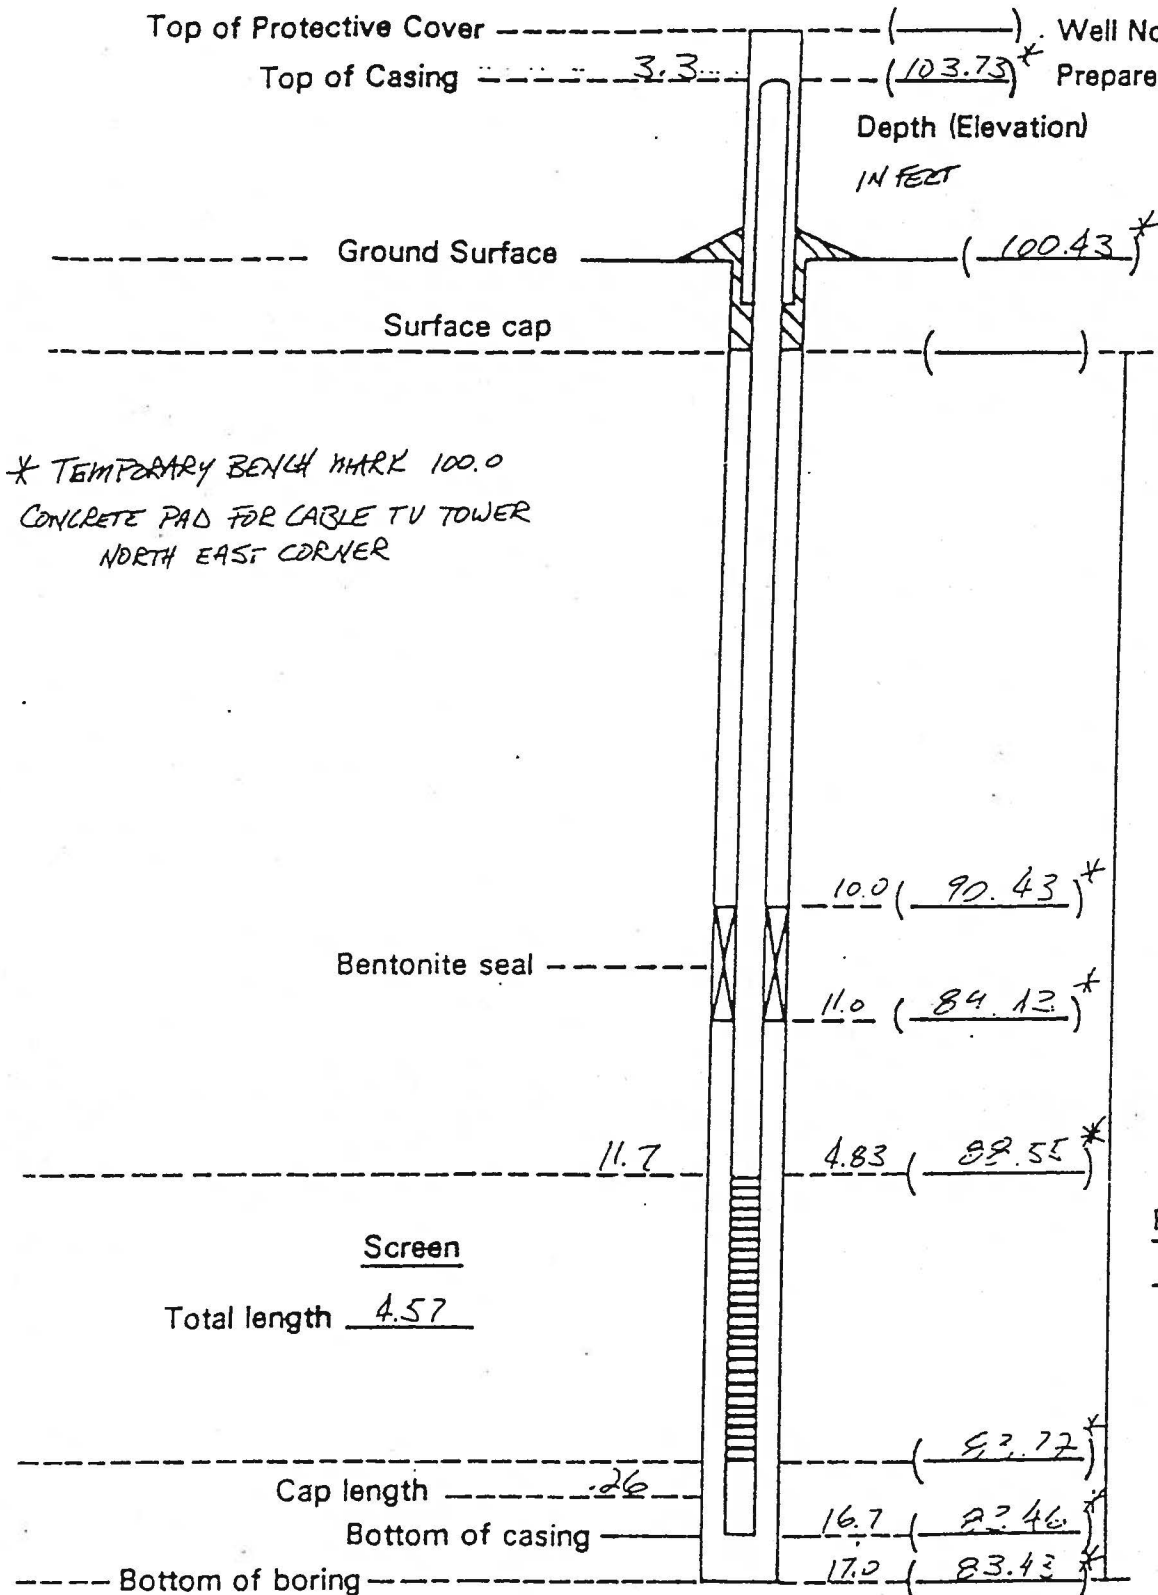 Top of Protective Cover ( ) Well No
Top of Casing 3.3 (103.73)* Prepare
Depth (Elevation)
IN FEET
Ground Surface (100.43)*
Surface cap ( )
* TEMPORARY BENCH MARK 100.0
CONCRETE PAD FOR CABLE TV TOWER
NORTH EAST CORNER
10.0 (90.43)*
Bentonite seal
11.0 ( )*
11.7 4.83 ( )*
Screen
Total length 4.57
( )*
Cap length .26
Bottom of casing 16.7 ( )*
Bottom of boring 17.0 (83.43)*